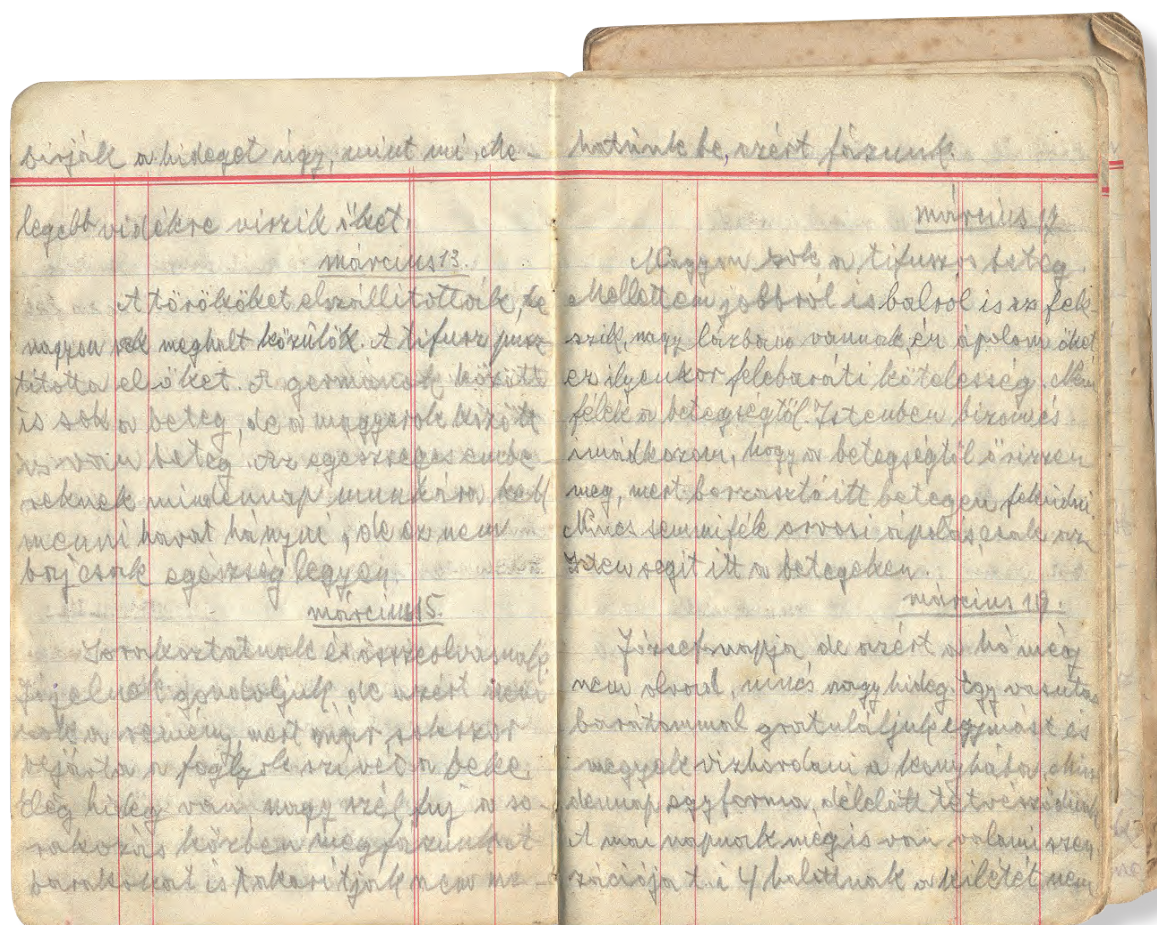 birják a hideget úgy, mint mi. Me-
legebb vidékre viszik őket.
március 13.
A törököket elszállították, de
nagyon sok meghalt közülök. A tifusz pusz
tította el őket. A germánok között
is sok a beteg, de a magyarok között
is van beteg. Az egészséges embe
reknek mindennap munkára kell
menni havat hányni, de ez nem
baj csak egészség legyen.
március 15.
Sorakoztatnak és összeolvasnak
jó jelnek gondoljuk, de azért nem
sok a remény, mert már sokszor
bejárta a foglyok szivét a béke.
Elég hideg van, nagy szél fuj a so
rakozás közben megfázunk a
barakokat is takarítják nem me-
hatünk be, azért fázunk.
március 17
Nagyon sok a tifuszos beteg.
Mellettem jobbról is balról is az fek
szik, nagy lázban vannak, én ápolom őket
ez ilyenkor felebaráti kötelesség. Nem
félek a betegségtől. Istenben bizom és
imádkozom, hogy a betegségtől őrizzen
meg, mert borzasztó itt betegen feküdni.
Nincs semmiféle orvosi ápolás, csak az
Isten segít itt a betegeken.
március 19.
József napja, de azért a hó még
nem olvad, nincs nagy hideg. Egy vasutas
barátommal gratuláljuk egymást és
megyek vizhordani a konyhába. Min
dennap egyforma, délelőtt tetvészkedünk
A mai napnak még is van valami szen
zációja t. i. 4 halottnak a kilétét nem